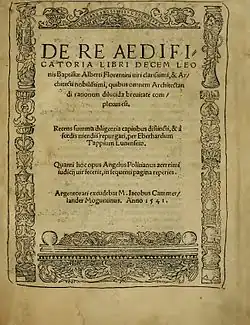 DE RE AEDIFI
CATORIA LIBRI DECEM LEO
nis Baptistæ Alberti Florentini uiri clarissimi, & Ar-
chitecti nobilissimi, quibus omnem Architectan
di rationem dilucida breuitate com
plexus est.
Recens summa diligentia capitibus distincti, & à
fœdis mendis repurgati, per Eberhardum
Tappium Lunensem.
Quanti hoc opus Angelus Politianus acerrimi
iudicij uir fecerit, in sequenti pagina reperies.
Argentorati excudebat M. Iacobus Cammer
lander Moguntinus. Anno 1541.